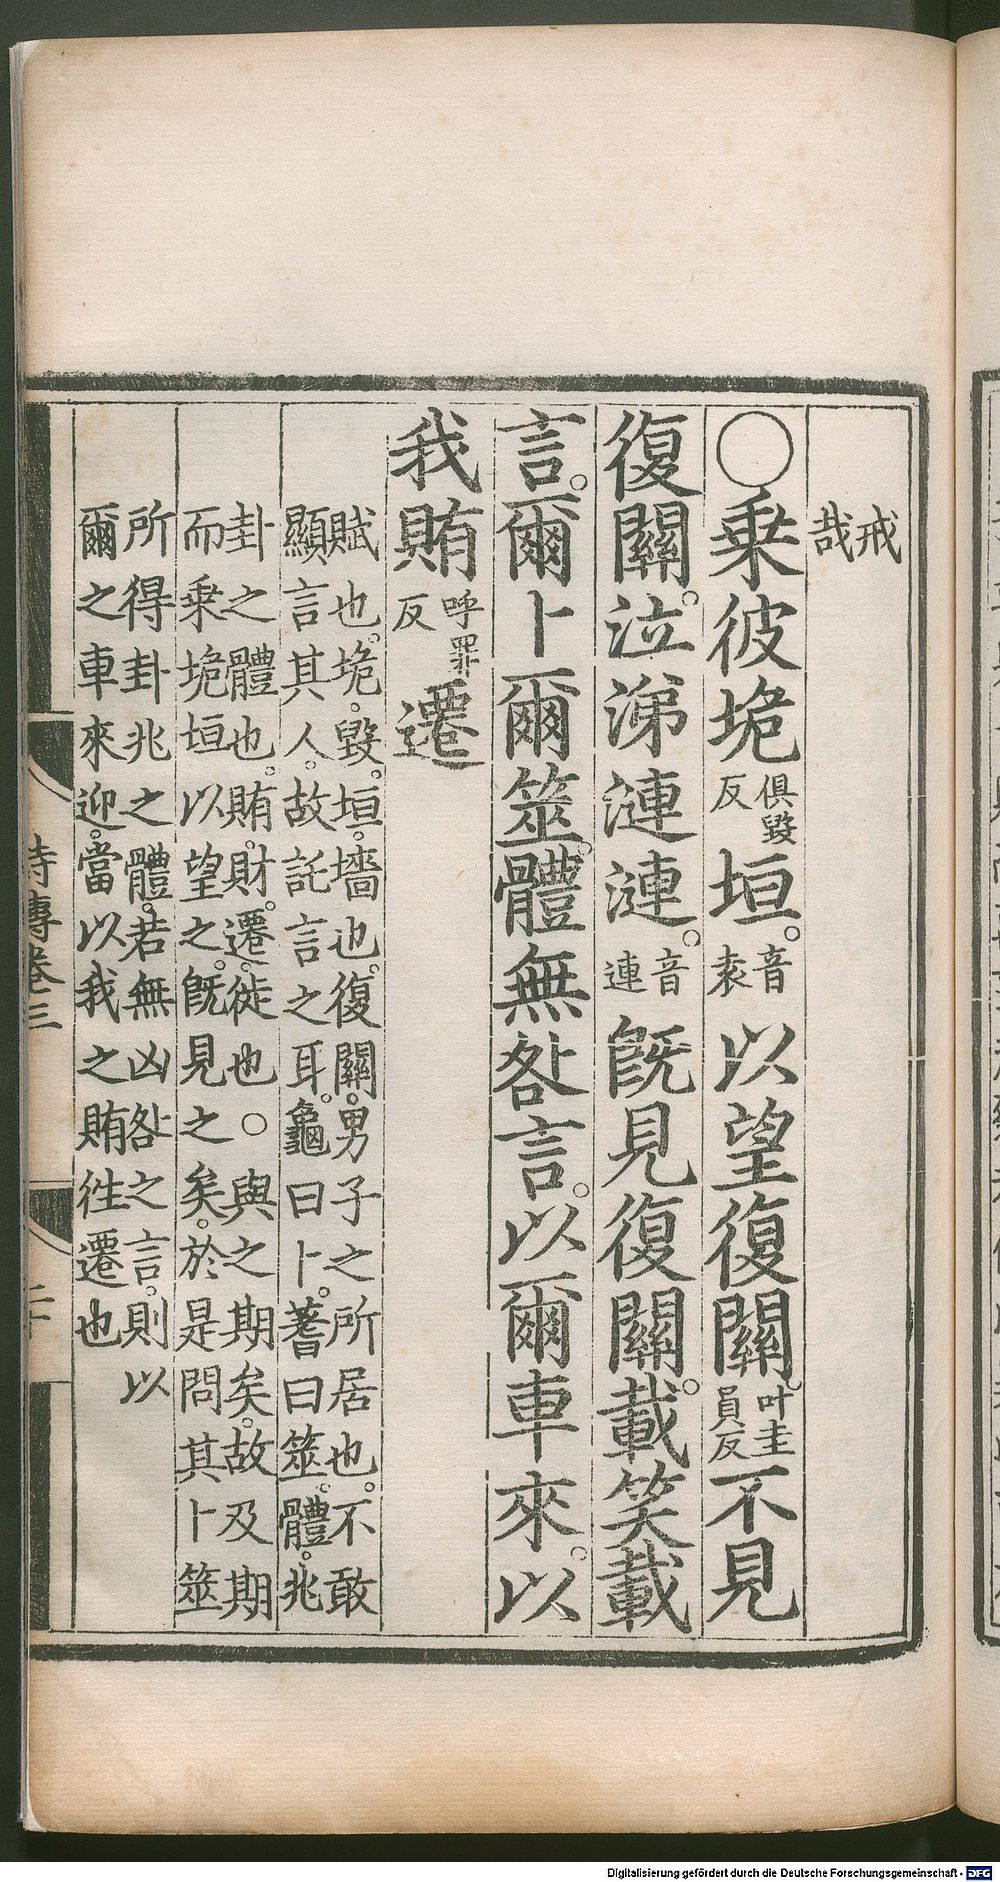 戒
哉
○乗彼垝俱毀反垣。音袁以望復關。叶圭員反不見
復關。泣涕漣漣。音連旣見復關。載笑載
言。爾卜爾筮。體無咎言。以爾車來。以
我賄呼罪反遷
賦也。垝。毀。垣。墻也。復關。男子之所居也。不敢
顯言其人。故託言之耳。龜曰卜。蓍曰筮。體。兆
卦之體也。賄。財。遷。徙也○與之期矣。故及期
而乗垝垣以望之。旣見之矣。於是問其卜筮
所得卦兆之體。若無凶咎之言。則以
爾之車來迎。當以我之賄徃遷也
詩傳卷三
二十
Digitalisierung gefördert durch die Deutsche Forschungsgemeinschaft - DFG